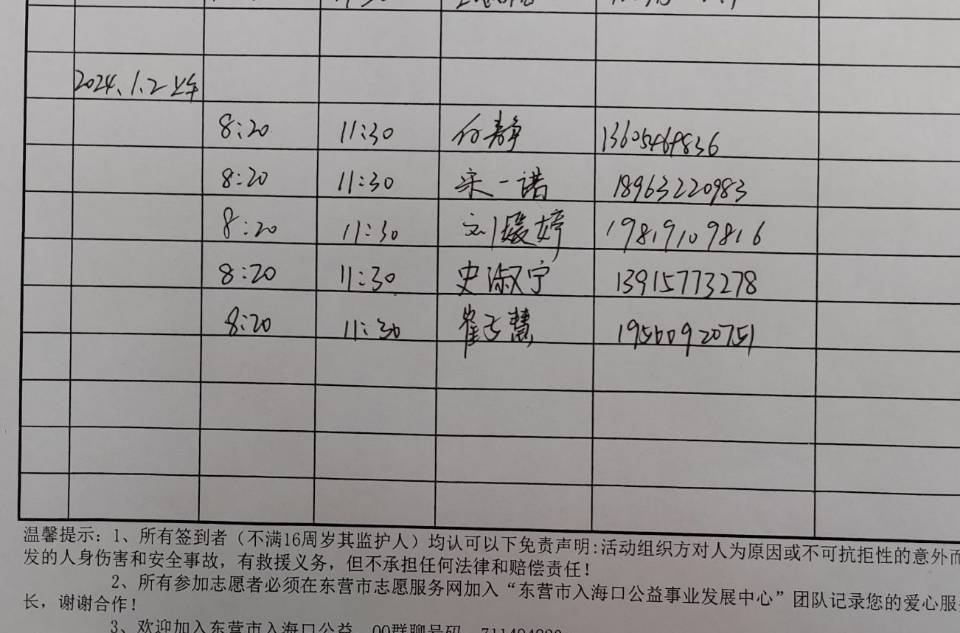 2024.1.2上午
8:20 11:30 付静 13605464836
8:20 11:30 宋一诺 18963220983
8:20 11:30 刘媛婷 19819109816
8:20 11:30 史淑宁 13915773278
8:20 11:30 崔子慧 19560920751
温馨提示：1、所有签到者（不满16周岁其监护人）均认可以下免责声明:活动组织方对人为原因或不可抗拒性的意外而
发的人身伤害和安全事故，有救援义务，但不承担任何法律和赔偿责任！
2、所有参加志愿者必须在东营市志愿服务网加入“东营市入海口公益事业发展中心”团队记录您的爱心服
长，谢谢合作！
3、欢迎加入东营市入海口公益 QQ群聊号码